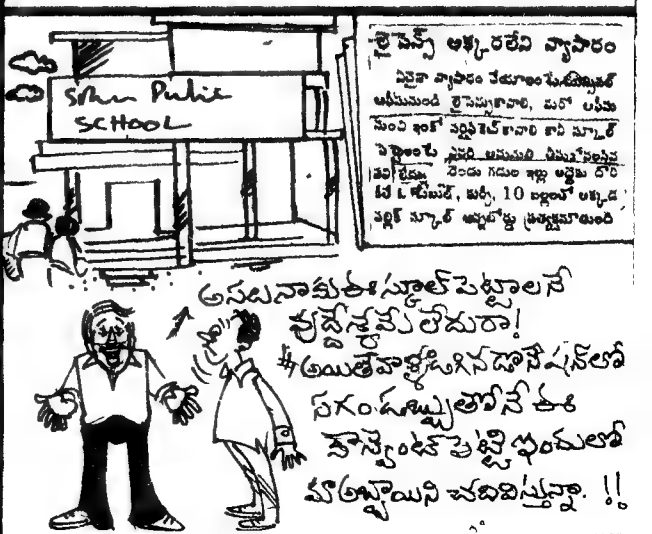 Sohan Public
SCHOOL
లైసెన్స్ అక్కరలేని వ్యాపారం
ఏదైనా వ్యాపారం చేయాలంటే మునిసిపల్
ఆఫీసునుండి లైసెన్సుకావాలి, మరో ఆఫీసు
నుంచి ఇంకో సర్టిఫికెట్ కావాలి కానీ స్కూల్
పెట్టాలంటే ఎవరి అనుమతి తీసుకోనవసర
రెండు గదుల ఇల్లు అద్దెకు దొరి
కితే ఓ టేబుల్, కుర్చీ, 10 బల్లలతో అక్కడ
పబ్లిక్ స్కూల్ అన్నబోర్డు ప్రత్యక్షమౌతుంది
అసలు నాకు ఈ స్కూల్ పెట్టాలనే
వుద్దేశ్యమే లేదురా!
అయితే వాళ్ళడిగిన డొనేషన్‌లో
సగం డబ్బుతోనే ఈ
కాన్వెంట్ పెట్టి ఇందులో
మా అబ్బాయిని చదివిస్తున్నా. !!